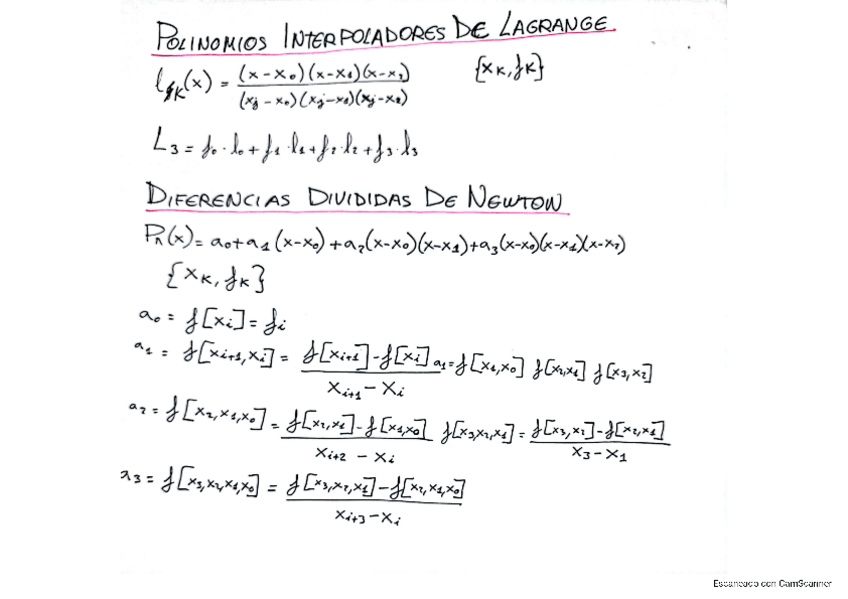 POLINOMIOS INTERPOLADORES DE LAGRANGE
l_k(x) = (x-x₀)(x-x₁)(x-x₂) / (xⱼ-x₀)(xⱼ-x₁)(xⱼ-x₂) {x_K, f_K}
L₃ = f₀·l₀+f₁·l₁+f₂·l₂+f₃·l₃
DIFERENCIAS DIVIDIDAS DE NEWTON
Pₙ(x) = a₀+a₁(x-x₀)+a₂(x-x₀)(x-x₁)+a₃(x-x₀)(x-x₁)(x-x₂)
{x_K, f_K}
a₀ = f[xᵢ] = fᵢ
a₁ = f[xᵢ₊₁,xᵢ] = f[xᵢ₊₁]-f[xᵢ] / xᵢ₊₁-xᵢ a₁=f[x₁,x₀] f[x₂,x₁] f[x₃,x₂]
a₂ = f[x₂,x₁,x₀] = f[x₂,x₁]-f[x₁,x₀] / xᵢ₊₂-xᵢ f[x₃,x₂,x₁] = f[x₃,x₂]-f[x₂,x₁] / x₃-x₁
a₃ = f[x₃,x₂,x₁,x₀] = f[x₃,x₂,x₁]-f[x₂,x₁,x₀] / xᵢ₊₃-xᵢ
Escaneado con CamScanner